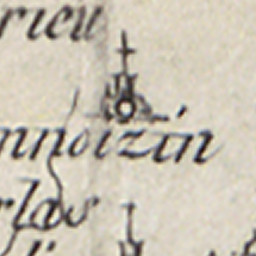 rieu
nnoizin
rlas